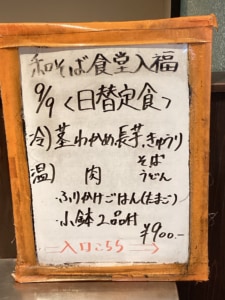 和そば食堂入福
9/9〈日替定食〉
冷)茎わかめ、長芋、きゅうり
温) 肉 そば
うどん
・ふりかけごはん(たまご)
・小鉢2品付
¥900-
入口こちら→